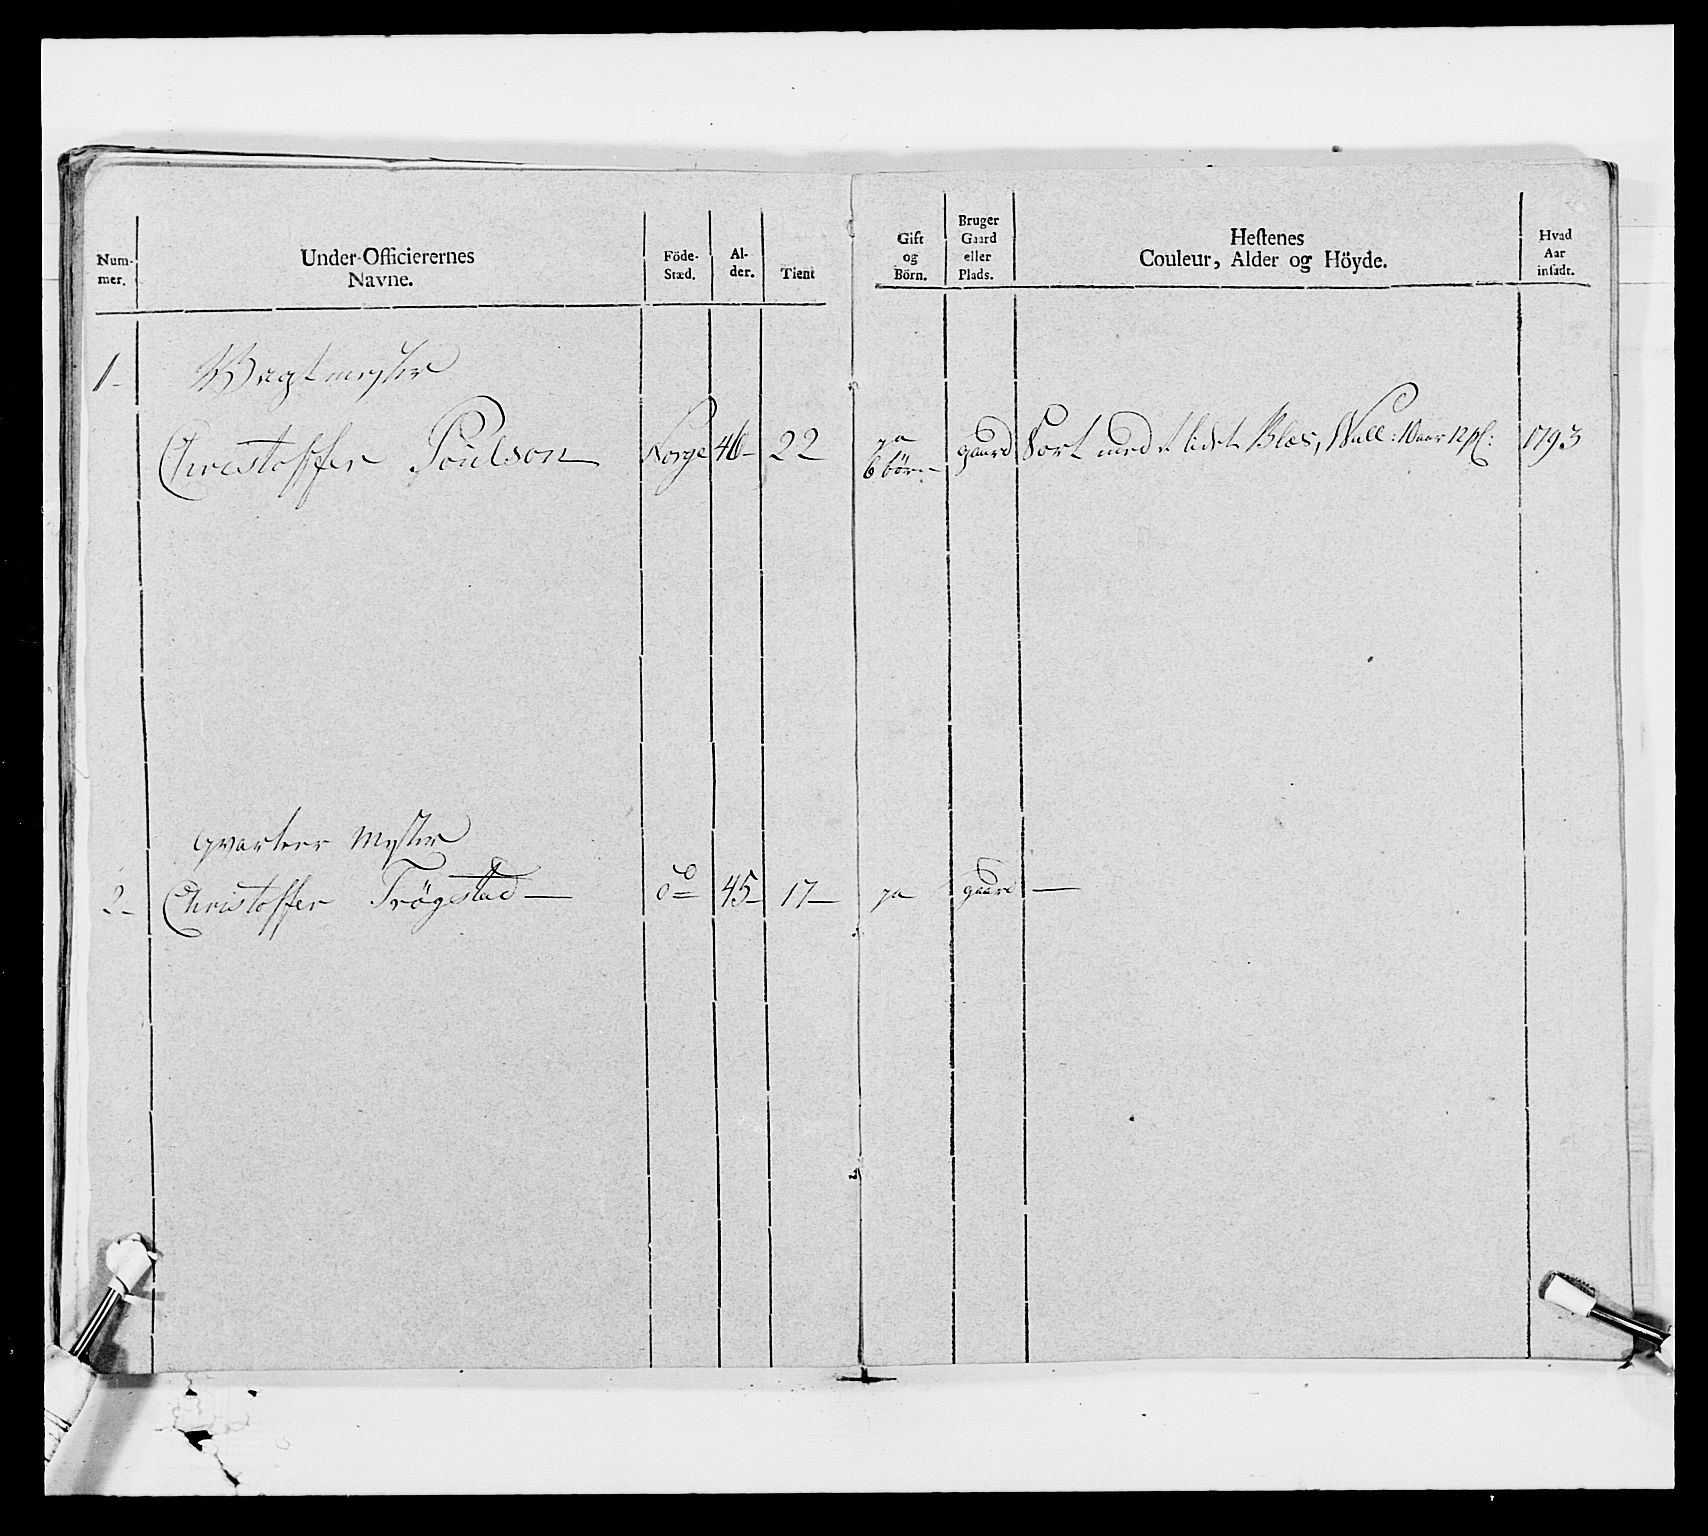 Num-
mer.
Under-Officierernes
Navne.
Föde-
Stæd.
Al-
der.
Tient
Gift
og
Börn.
Bruger
Gaard
eller
Plads.
Hestenes
Couleur, Alder og Höyde.
Hvad
Aar
insadt.
1- Vagtmester
Christoffer Poulson Norge 46- 22 ja gaard Sort med et lidet Blæs, Vall: 10 aar 12 pl: 1793
6 börn
qvarteer Mester
2- Christoffer Trögstad — do 45- 17- ja gaard —